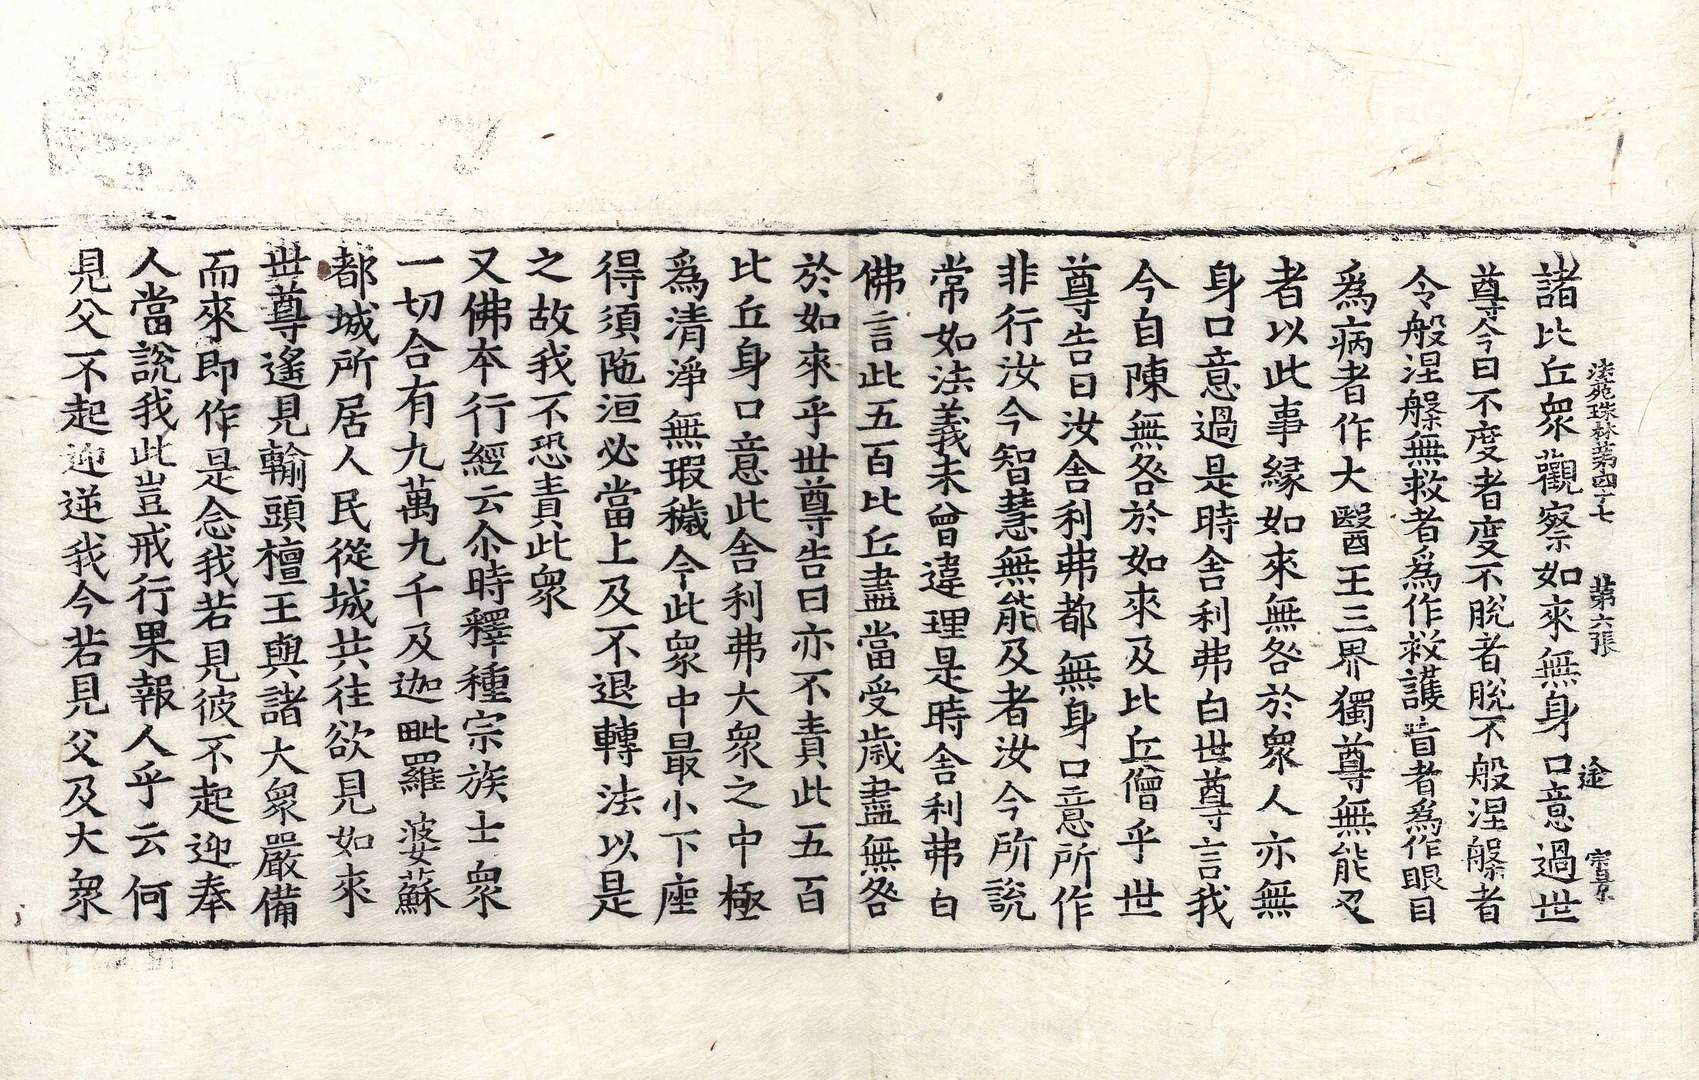 法苑珠林第四十七　第六張　途　宗景
諸比丘衆觀察如來無身口意過世
尊今日不度者度不脫者脫不般涅槃者
令般涅槃無救者爲作救護盲者爲作眼目
爲病者作大醫王三界獨尊無能及
者以此事緣如來無咎於衆人亦無
身口意過是時舍利弗白世尊言我
今自陳無咎於如來及比丘僧乎世
尊告曰汝舍利弗都無身口意所作
非行汝今智慧無能及者汝今所說
常如法義未曾違理是時舍利弗白
佛言此五百比丘盡當受歲盡無咎
於如來乎世尊告曰亦不責此五百
比丘身口意此舍利弗大衆之中極
爲清淨無瑕穢今此衆中最小下座
得須陁洹必當上及不退轉法以是
之故我不恐責此衆
又佛本行經云尒時釋種宗族士衆
一切合有九萬九千及迦毗羅婆蘇
都城所居人民從城共往欲見如來
世尊遙見輸頭檀王與諸大衆嚴備
而來即作是念我若見彼不起迎奉
人當說我此豈戒行果報人乎云何
見父不起迎逆我今若見父及大衆